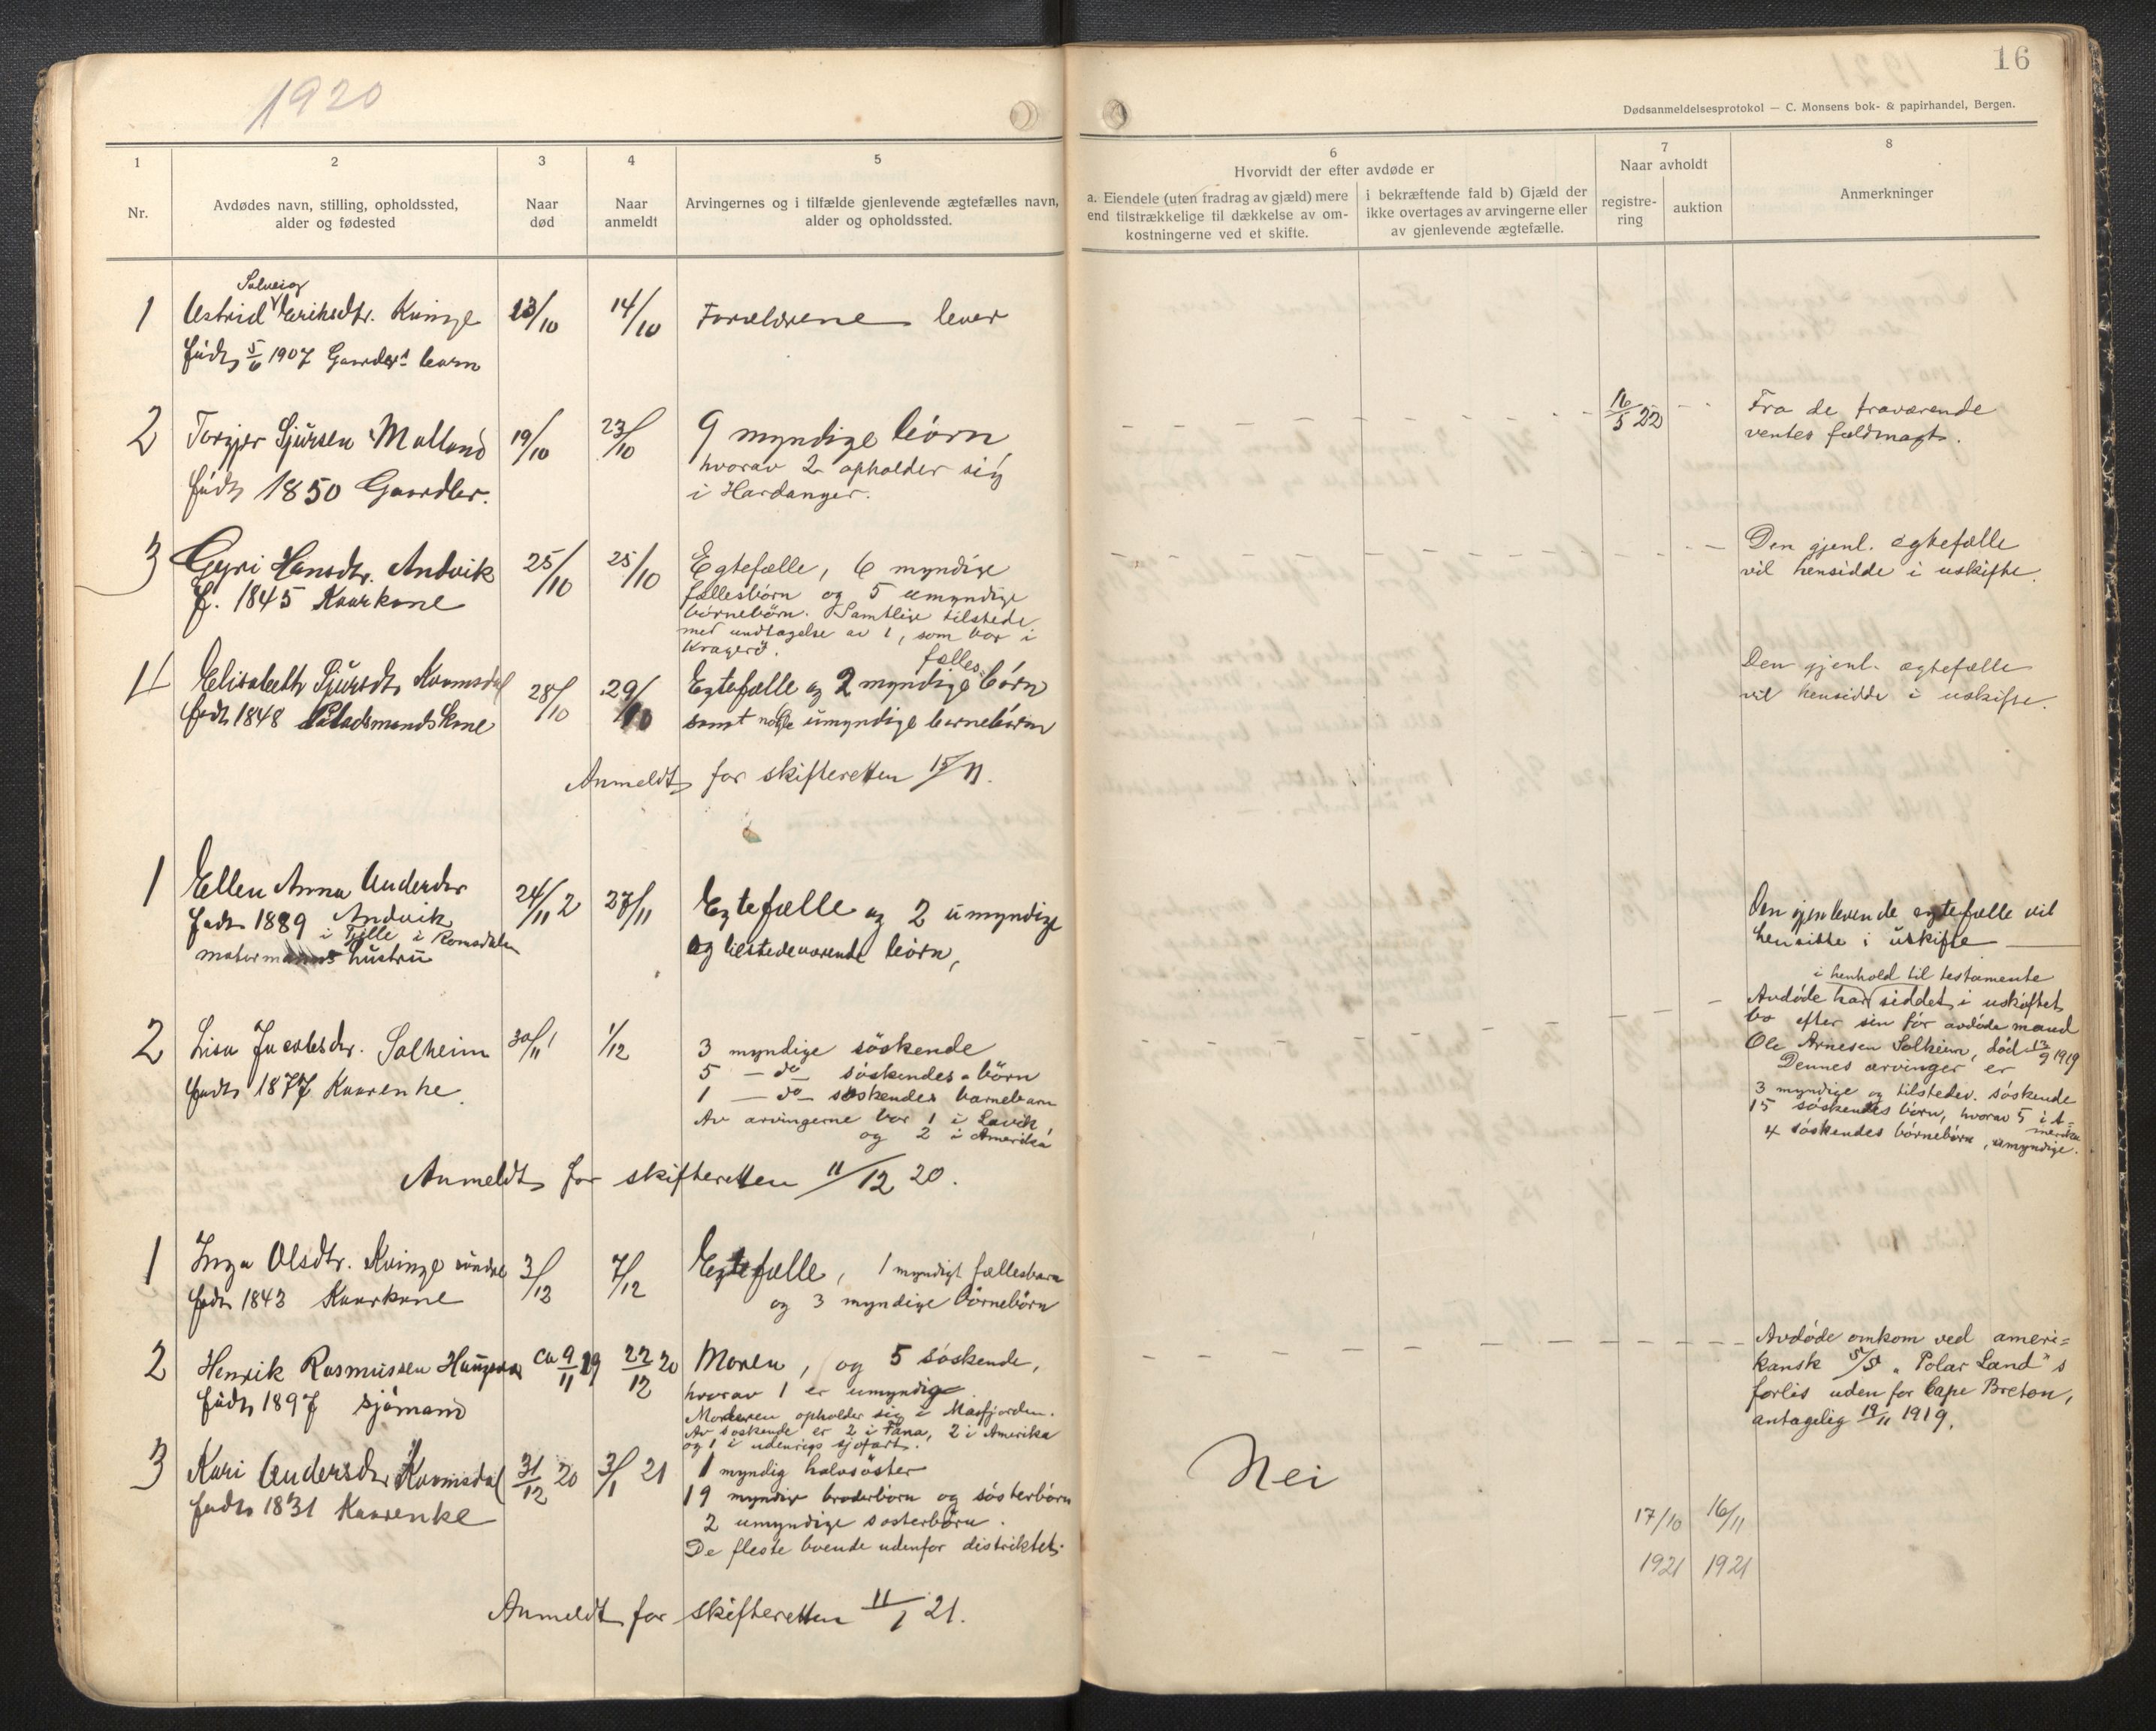 1920
16
Dødsanmeldelsesprotokol — C. Monsens bok- & papirhandel, Bergen.
1
2
3
4
5
6
7
8
Nr.
Avdødes navn, stilling, opholdssted,
alder og fødested
Naar
død
Naar
anmeldt
Arvingernes og i tilfælde gjenlevende ægtefælles navn,
alder og opholdssted.
Hvorvidt der efter avdøde er
a. Eiendele (uten fradrag av gjæld) mere
end tilstrækkelige til dækkelse av om-
kostningerne ved et skifte.
i bekræftende fald b) Gjæld der
ikke overtages av arvingerne eller
av gjenlevende ægtefælle.
Naar avholdt
registre-
ring
auktion
Anmerkninger
Solveig
1 Astrid Eriksdtr. Kvinge 13/10 14/10 Forældrene lever
født 5/6 1907 Gaardbr. barn
2 Torgjer Sjursen Matland 19/10 23/10 9 myndige börn 16/5 22 Fra de fraværende
hvorav 2 opholder sig ventes fuldmagt.
født 1850 Gaardbr. i Hardanger.
3 Gyri Hansdtr. Andvik 25/10 25/10 Egtefælle, 6 myndige Den gjenl. egtefælle
f. 1845 Kaarkone fællesbörn og 5 umyndige vil hensidde i uskifte.
börnebörn. Samtlige tilstede
med undtagelse av 1, som bor i
Kragerö.
fælles
4 Elisabeth Sjursdtr Kvamsdal 28/10 29/10 Egtefælle og 2 myndige börn Den gjenl. ægtefælle
født 1848 Pladsmandskone samt nogle umyndige barnebörn vil hensidde i uskifte.
Anmeldt for skifteretten 15/11.
1 Ellen Anna Andersdr 24/11 2 27/11 Egtefælle og 2 umyndige Den gjenlevende egtefælle vil
Andvik og tilstedeværende börn, hensidde i uskifte
født 1889 i Tjelle i Romsdalen
hustru
i henhold til testamente
Avdöde har siddet i uskiftet
bo efter sin för avdöde mand
2 Lisa Jacobsdr. Solheim 30/11 1 1/12 3 myndige söskende Ole Arnesen Solheim, död 13/9 1919
født 1877 Kaarenke. 5 — do — söskendes börn Dennes arvinger er
1 — do — söskendes barnebarn 3 myndige og tilstedev. söskende
Av arvingerne bor 1 i Lavik, 15 söskendes börn, hvorav 5 i A=
og 2 i Amerika merika
4 söskendes börnebörn, umyndige.
Anmeldt for skifteretten 11/12 20.
1 Inga Olsdtr. Kvinge söndre 3/12 7/12 Egtefælle, 1 myndigt fællesbarn
født 1843 Kaarkone og 3 myndige börnebörn
2 Henrik Rasmussen Haugsvær ca 9/11 19 22/12 20 Moren, og 5 söskende, Avdöde omkom ved ameri=
født 1897 sjömand hvorav 1 er umyndig kansk S/S "Polar Land"s
Moderen opholder sig i Masfjorden. forlis uden for Cape Breton,
Av söskende er 2 i Fana, 2 i Amerika antagelig 19/11 1919.
og 1 i udenrigs sjöfart.
3 Kari Andersdtr Kvamsdal 31/12 20 3/1 21 1 myndig halvsöster Nei
født 1831 Kaarenke 19 myndige broderbörn og sösterbörn
2 umyndige sösterbörn. 17/10 16/11
De fleste boende udenfor distriktet. 1921 1921
Anmeldt for skifteretten 11/1 21.